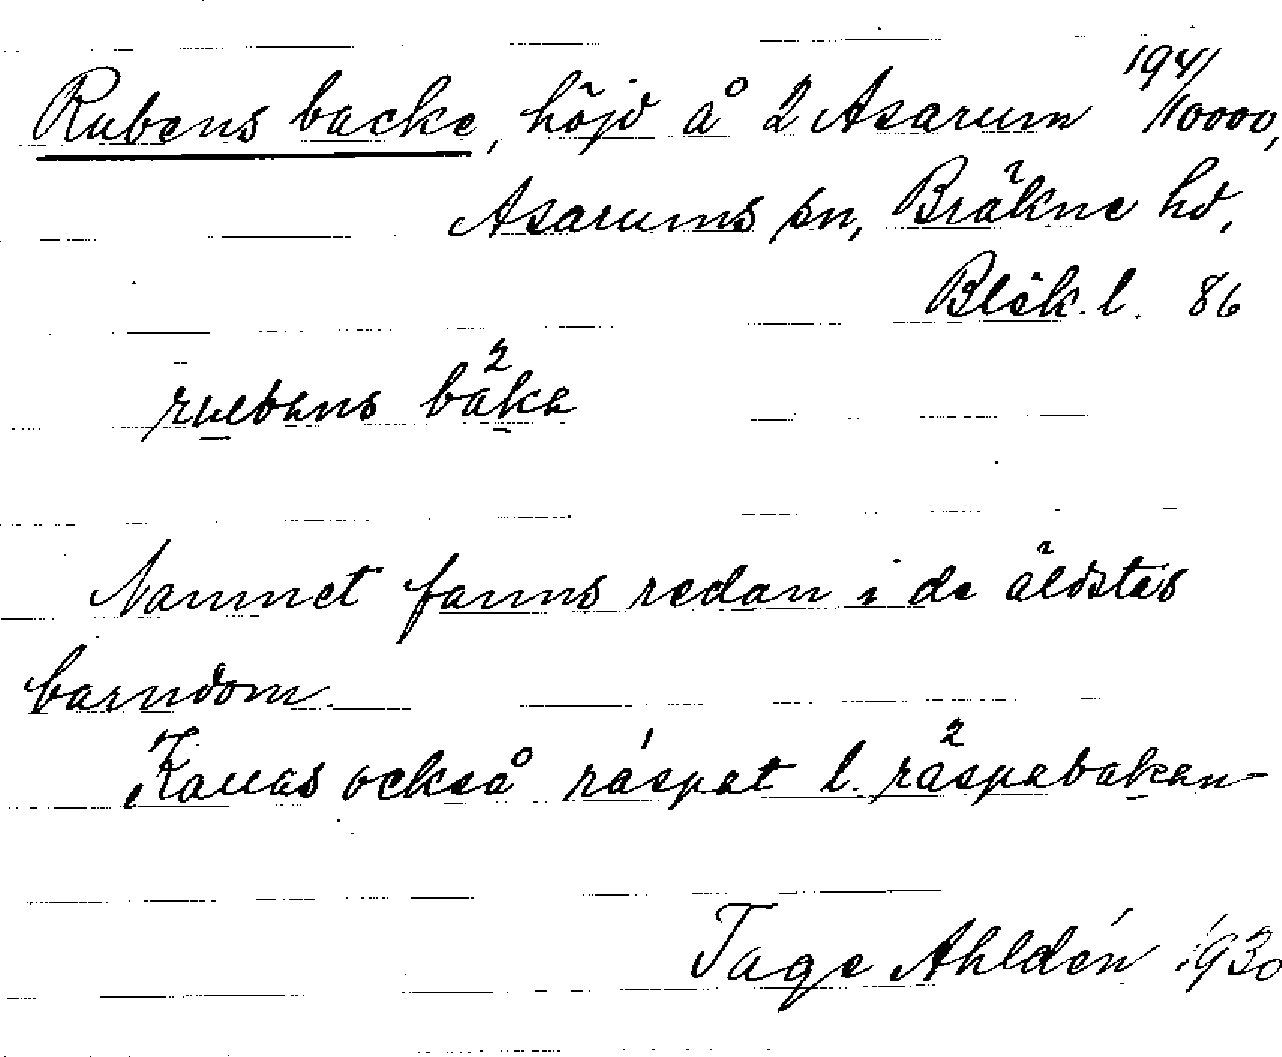 Rubens backe, höjd å 2 Asarum 1941/10000,
Asarums sn, Bräkne hd,
Blek. l. 86
ruebans båka
Namnet fanns redan i de äldstas
barndom.
Kallas också ráspet l. råspebakan
Tage Ahldén 1930